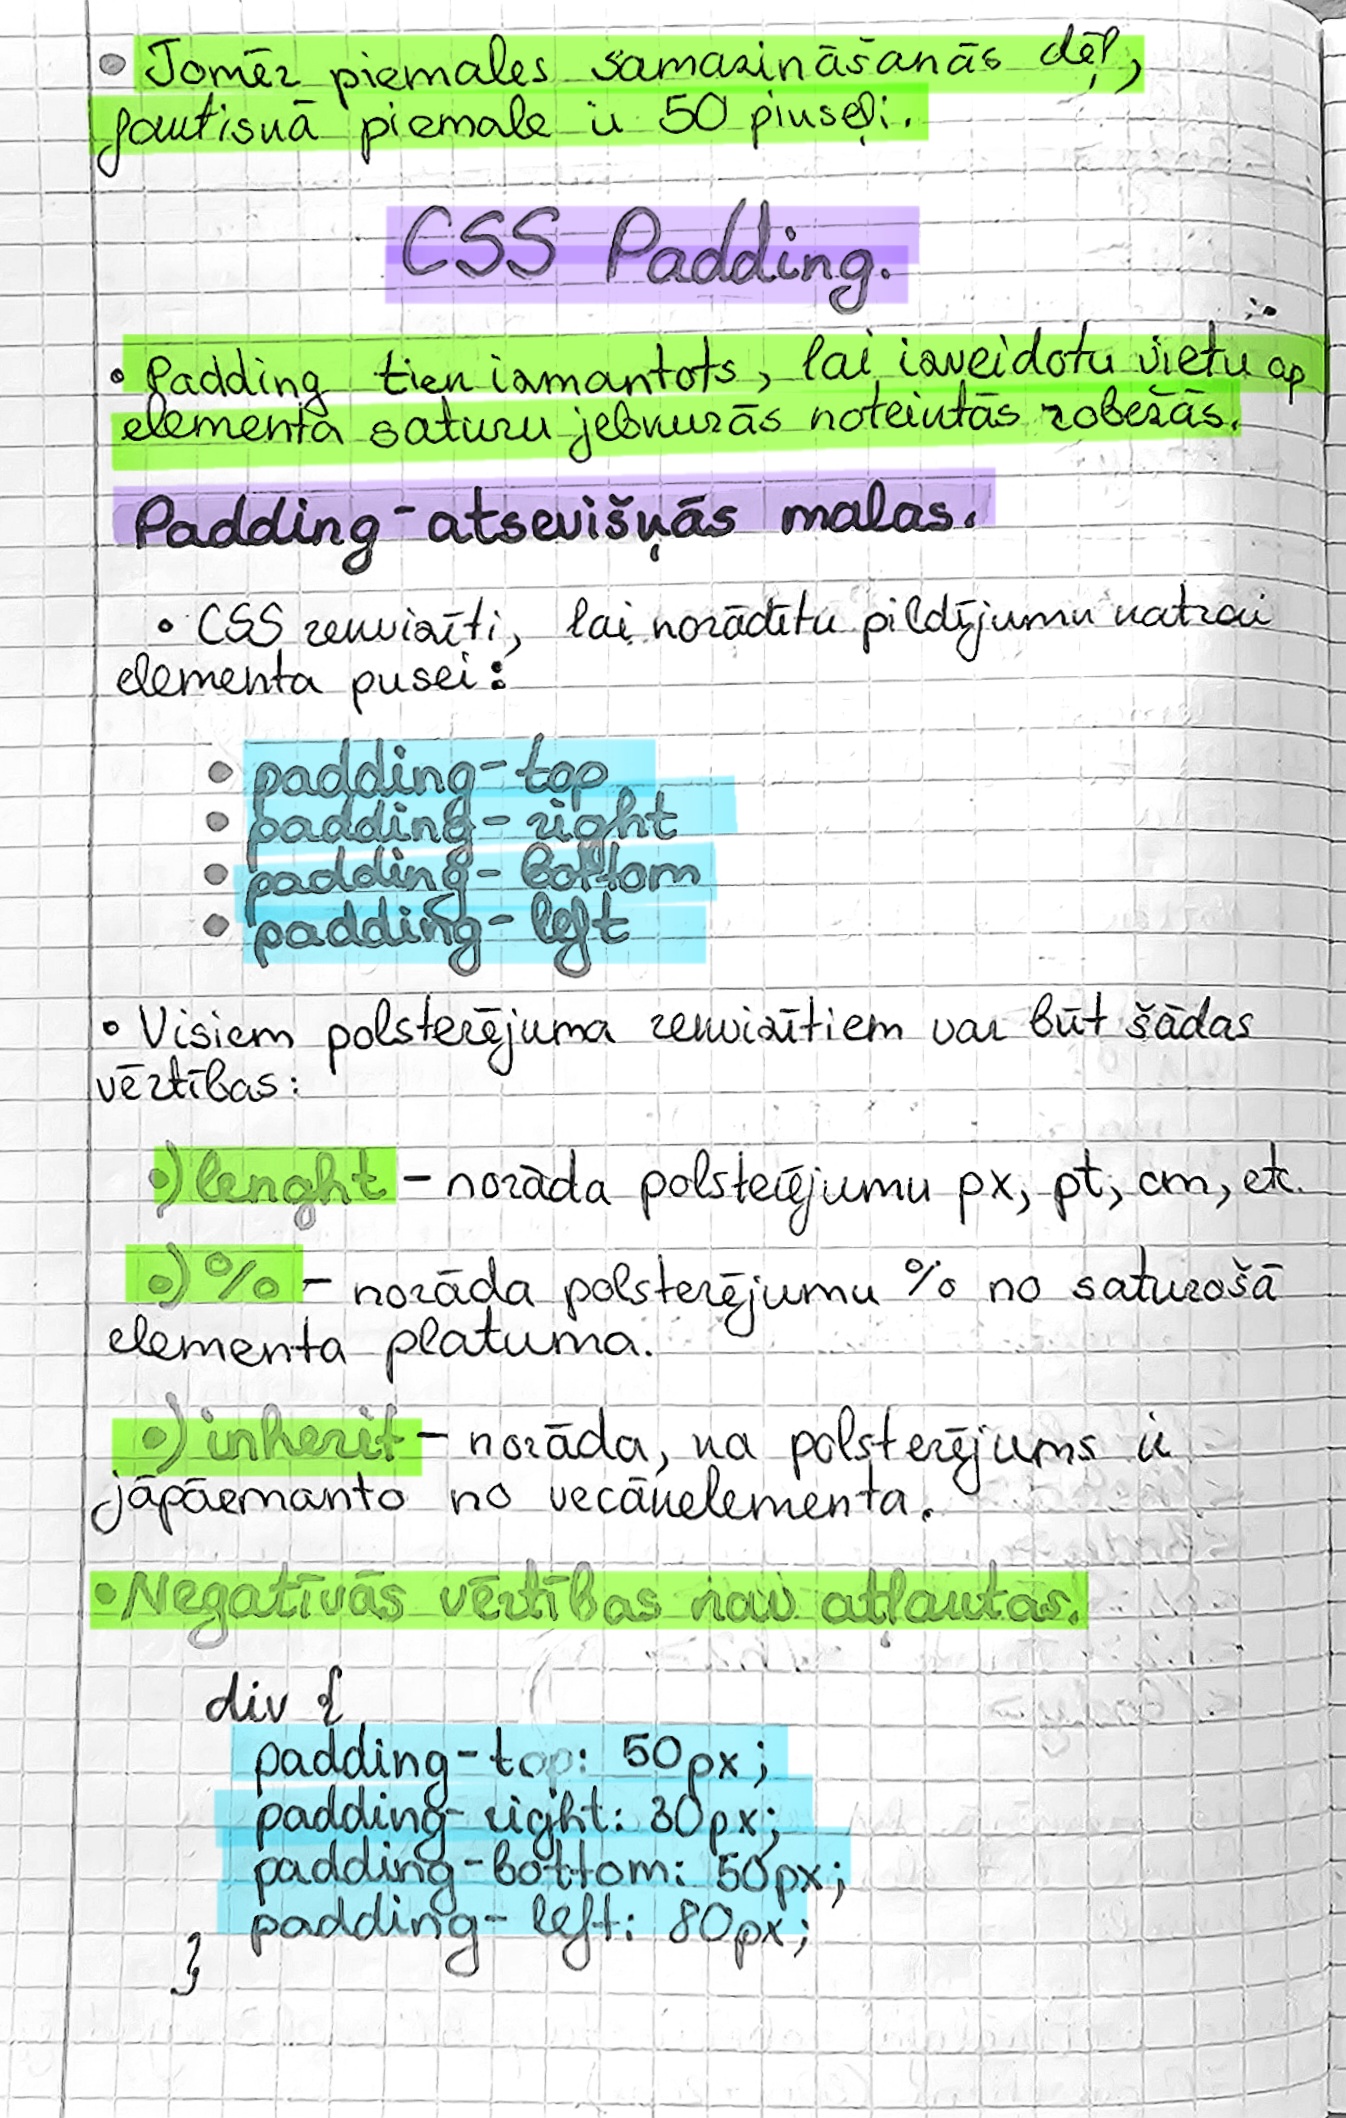 • Tomēr piemales samazināšanās dēļ,
faktiskā piemale ir 50 pikseļi.
CSS Padding.
• Padding tiek izmantots, lai izveidotu vietu ap
elementa saturu jebkurās noteiktās robežās.
Padding - atsevišķās malas.
• CSS rekvizīti, lai norādītu pildījumu katrai
elementa pusei:
• padding-top
• padding-right
• padding-bottom
• padding-left
• Visiem polsterējuma rekvizītiem var būt šādas
vērtības:
•) lenght - norāda polsterējumu px, pt, cm, etc.
•) % - norāda polsterējumu % no saturošā
elementa platuma.
•) inherit - norāda, ka polsterējums ir
jāpāemanto no vecākelementa.
• Negatīvās vērtības nav atļautas.
div {
padding-top: 50px;
padding-right: 30px;
padding-bottom: 50px;
padding-left: 80px;
}